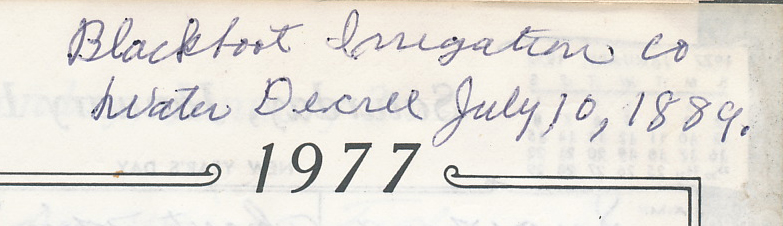 Blackfoot Irrigation co
Water Decree July, 10, 1889.
1977